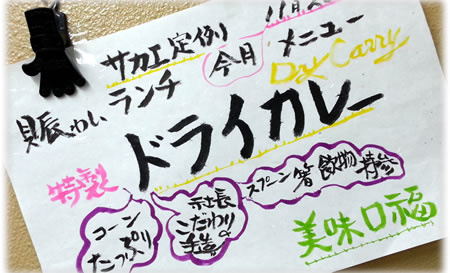 サカエ定例
ランチ
今月
11月
メニュー
Dry Carry
賑わい
ドライカレー
特製
コーン
たっぷり
社長
こだわり
スプーン 箸 飲物 持参
美味口福